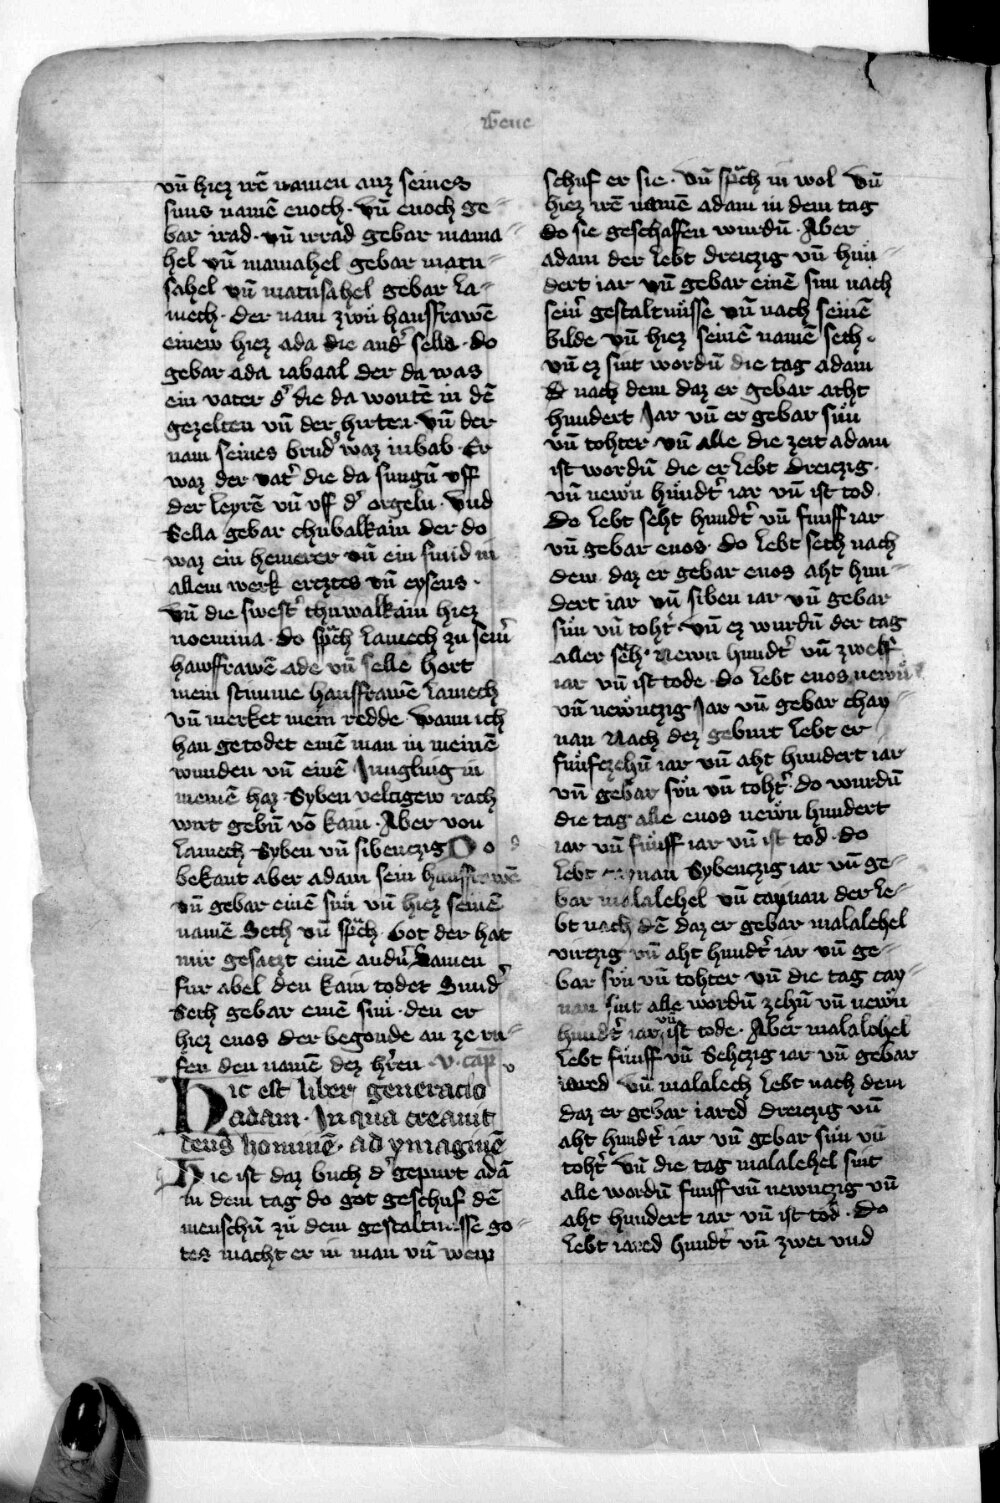 Gene
vn̄ hiez irē namen auz seines
suns namē enoch · vn̄ enoch ge-
bar irad · vn̄ irrad gebar mama-
hel vn̄ mamahel gebar matu-
sahel vn̄ matusahel gebar la-
mech · der nam zwu hausfrawē
einew hiez ada die and᷑ sella · do
gebar ada iabaal der da was
ein vater d᷑ die da wontē in dē
gezelten vn̄ der hirten · vn̄ der
nam seines brud᷑ waz iubab · Er
waz der vat᷑ die da sungn̄ vff
der leyrē vn̄ vff d᷑ orgeln · vnd
Sella gebar chubalkain der do
waz ein hemerer vn̄ ein smid in
allem werk ercztes vn̄ eysens ·
vn̄ die swest᷑ thuwalkain hiez
noemma · do sp̄ch lamech zu sein᷑
hawsfrawē ade vn̄ selle hort
mein stimme hausfrawē lamech
vn̄ merket mein redde wann ich
han getodet einē man in meinē
wunden vn̄ einē Jungling in
meinē haz Syben veltigew rach
wirt gebn̄ vō kain · Aber von
lamech Syben vn̄ sibenczig Do
bekant aber adam sein hausfrawē
vn̄ gebar einē sun vn̄ hiez seinē
namē Seth vn̄ sp̄ch · Got der hat
mir gesaczt einē andn̄ Samen
fur abel den kain todet Sund᷑
Seth gebar einē sun · den er
hiez enos der begonde an ze ru-
fen den namē dez h᷑ren · v · cap
Hic est liber generacio
adam · In qua creauit
deus hominē · ad ymaginē
Hie ist daz buch d᷑ gepurt adā
in dem tag do got geschuf dē
menschn̄ zu dem gestaltnusse go-
tes macht er in man vn̄ weip
schuf er sie · vn̄ sp̄ch in wol vn̄
hiez irē namē adam in dem tag
do sie geschaffen wurdn̄ · Aber
adam der lebt dreiczig vn̄ hun-
dert iar vn̄ gebar einē sun nach
sein᷑ gestaltnusse vn̄ nach seinē
bilde vn̄ hiez seinē namē seth ·
vn̄ ez sint wordn̄ die tag adam
d᷑ nach dem daz er gebar acht
hundert Jar vn̄ er gebar sun
vn̄ tohter vn̄ alle die zeit adam
ist wordn̄ die er lebt dreiczig ·
vn̄ newn hundt᷑ iar vn̄ ist tod ·
Do lebt seht hundt᷑ vn̄ funff iar
vn̄ gebar enos · do lebt seth nach
dem daz er gebar enos aht hun-
dert iar vn̄ siben iar vn̄ gebar
sun vn̄ toht᷑ · vn̄ ez wurdn̄ der tag
aller seth · Newn hundt᷑ vn̄ zwelff
iar vn̄ ist tode · do lebt enos newn
vn̄ newnczig Jar vn̄ gebar chay-
nan Nach dez geburt lebt er
funfczehn̄ iar vn̄ aht hundert iar
vn̄ gebar sun vn̄ toht᷑ · do wurdn̄
die tag alle enos newn hundert
iar vn̄ funff iar vn̄ ist tod · do
lebt Sybenczig iar vn̄ ge-
bar malalehel vn̄ caynan der le-
bt nach dē daz er gebar malalehel
virczig vn̄ aht hundt᷑ iar vn̄ ge-
bar sun vn̄ tohter vn̄ die tag cay-
nan sint alle wordn̄ zehn̄ vn̄ newn
hundt᷑ iar vn̄ ist tode · Aber malalehel
lebt funff vn̄ Sehczig iar vn̄ gebar
iared vn̄ malalech lebt nach dem
daz er gebar iared dreiczig vn̄
aht hundt᷑ iar vn̄ gebar sun vn̄
toht᷑ vn̄ die tag malalehel sint
alle wordn̄ funff vn̄ newnczig vn̄
aht hundert iar vn̄ ist tod · Do
lebt iared hundt᷑ vn̄ zwei vnd